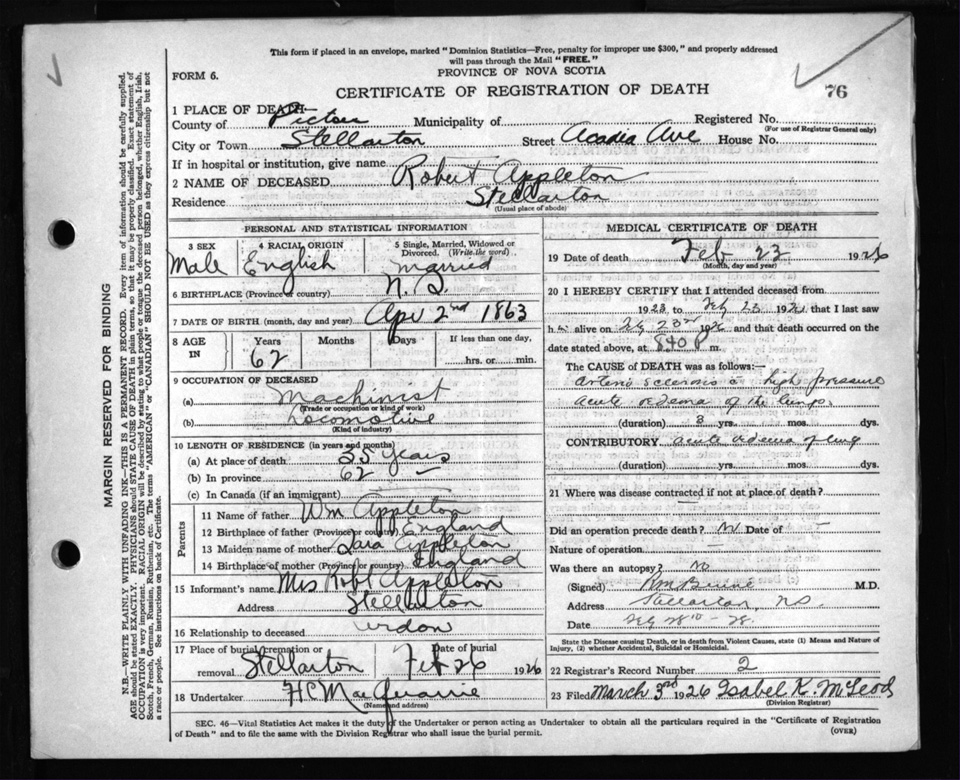 This form if placed in an envelope, marked "Dominion Statistics—Free, penalty for improper use $300," and properly addressed
will pass through the Mail "FREE."
FORM 6.
PROVINCE OF NOVA SCOTIA
CERTIFICATE OF REGISTRATION OF DEATH
76
1 PLACE OF DEATH
County of Pictou Municipality of Registered No.
(For use of Registrar General only)
City or Town Stellarton Street Acadia Ave House No.
If in hospital or institution, give name
2 NAME OF DECEASED Robert Appleton
Residence Stellarton
(Usual place of abode)
PERSONAL AND STATISTICAL INFORMATION
3 SEX Male
4 RACIAL ORIGIN English
5 Single, Married, Widowed or Divorced. (Write the word) married
6 BIRTHPLACE (Province or country) N.S.
7 DATE OF BIRTH (month, day and year) Apr 2nd 1863
8 AGE IN Years 62 Months Days If less than one day, hrs. or min.
9 OCCUPATION OF DECEASED
(a) Machinist
(Trade or occupation or kind of work)
(b) Locomotive
(Kind of industry)
10 LENGTH OF RESIDENCE (in years and months)
(a) At place of death years
(b) In province 62 —
(c) In Canada (if an immigrant)
Parents
11 Name of father Wm Appleton
12 Birthplace of father (Province or country) England
13 Maiden name of mother Appleton
14 Birthplace of mother (Province or country) England
15 Informant's name Mrs Robt Appleton
Address Stellarton
16 Relationship to deceased
17 Place of burial, cremation or removal Stellarton Date of burial Feb 26 1926
18 Undertaker H C MacQuarrie
(Name and address)
MEDICAL CERTIFICATE OF DEATH
19 Date of death Feb 23 1926
(Month, day and year)
20 I HEREBY CERTIFY that I attended deceased from
1923 to Feb 23 1926 that I last saw
h alive on Feb 23rd 1926 and that death occurred on
date stated above, at 840 P m.
The CAUSE of DEATH was as follows:—
arterio sclerosis high pressure
acute oedema of the lungs
(duration) 3 yrs. mos. dys.
CONTRIBUTORY acute oedema of lung
(duration) yrs. mos. dys.
21 Where was disease contracted if not at place of death?
Did an operation precede death? Date of —
Nature of operation —
Was there an autopsy? No
(Signed) M.D.
Address Stellarton, N.S.
Date
State the Disease causing Death, or in death from Violent Causes, state (1) Means and Nature of
Injury, (2) whether Accidental, Suicidal or Homicidal.
22 Registrar's Record Number 2
23 Filed March 3rd 1926 Isabel K. McLeod
(Division Registrar)
SEC. 46—Vital Statistics Act makes it the duty of the Undertaker or person acting as Undertaker to obtain all the particulars required in the "Certificate of Registration
of Death" and to file the same with the Division Registrar who shall issue the burial permit.
(OVER)
MARGIN RESERVED FOR BINDING
N.B.—WRITE PLAINLY WITH UNFADING INK—THIS IS A PERMANENT RECORD. Every item of information should be carefully supplied.
AGE should be stated EXACTLY. PHYSICIANS should STATE CAUSE OF DEATH in plain terms, so that it may be properly classified. Exact statement of
OCCUPATION is very important. RACIAL ORIGIN will be described by stating to what people or tongue the deceased person belonged, whether English, Irish,
Scotch, French, German, Russian, Ruthenian, etc. The terms "AMERICAN" or "CANADIAN" SHOULD NOT BE USED as they express citizenship but not
a race or people. See instructions on back of Certificate.